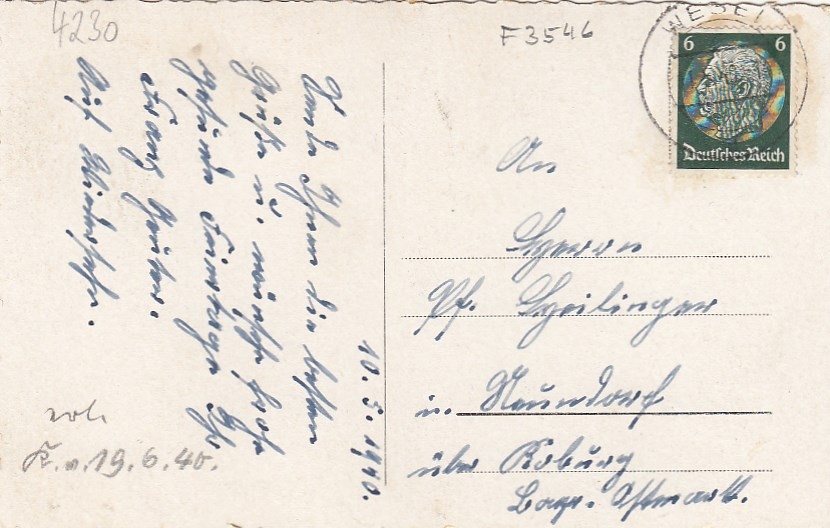 4230
F 3546
WESEL
6 6
Deutsches Reich
10. 5. 1940.
Sende Ihnen die besten
Grüße u. wünsche frohe
gesunde Feiertage Ihr
Franz
Auf Wiedersehn.
An
Herrn
Pf. Heilinger
in Neundorf
über Koburg
Bayr. Ostmark.
erl.
K. v. 19. 6. 40.